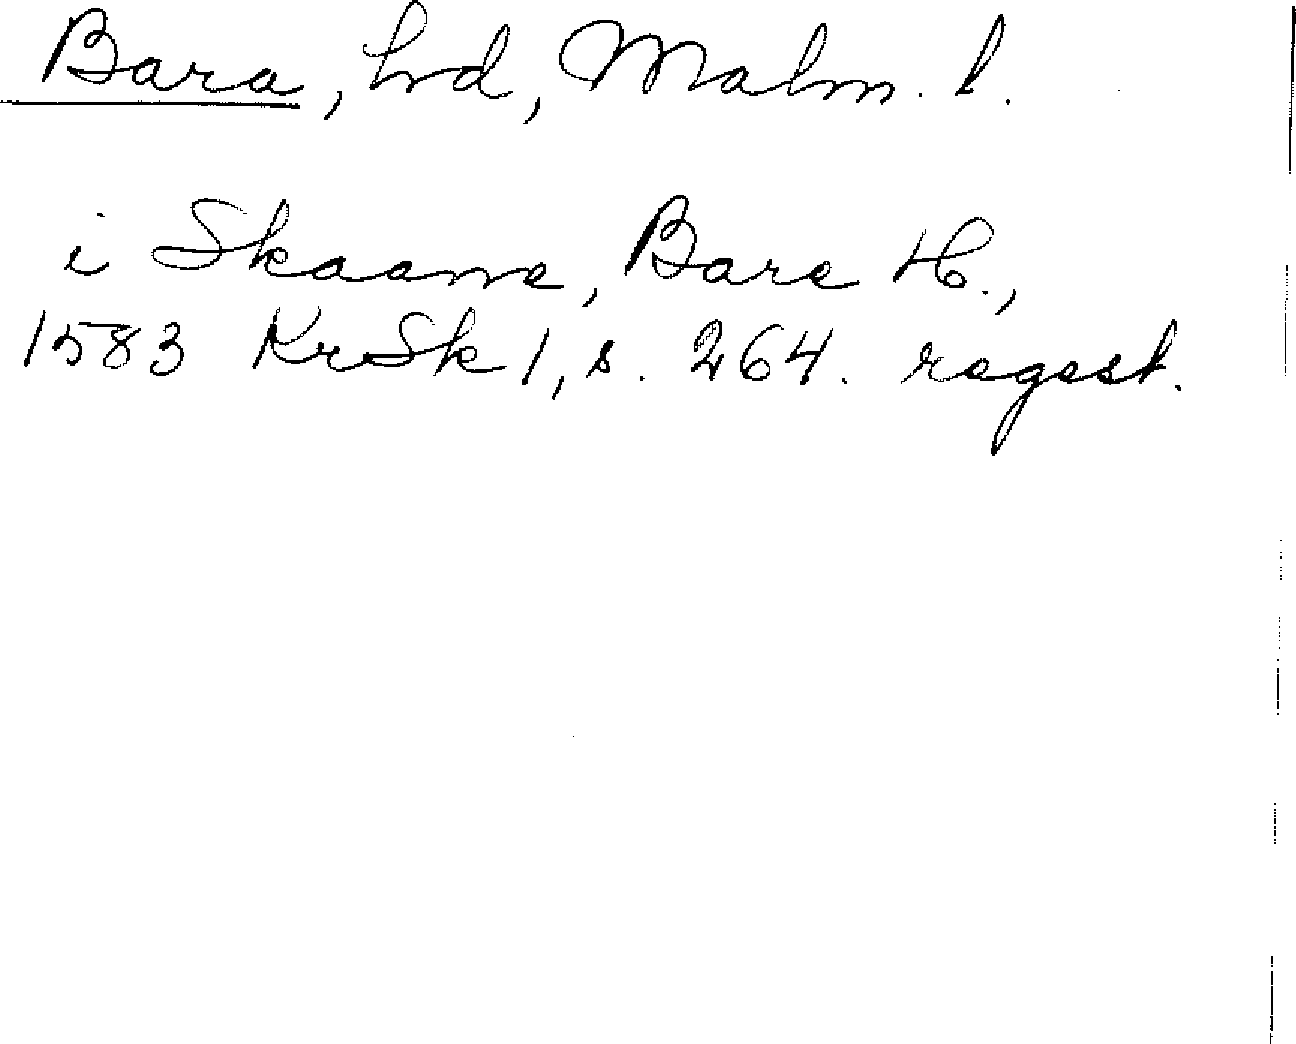 Bara, hd, Malm. l.
i Skaane, Bare H.,
1583 KrSk 1, s. 264. regest.